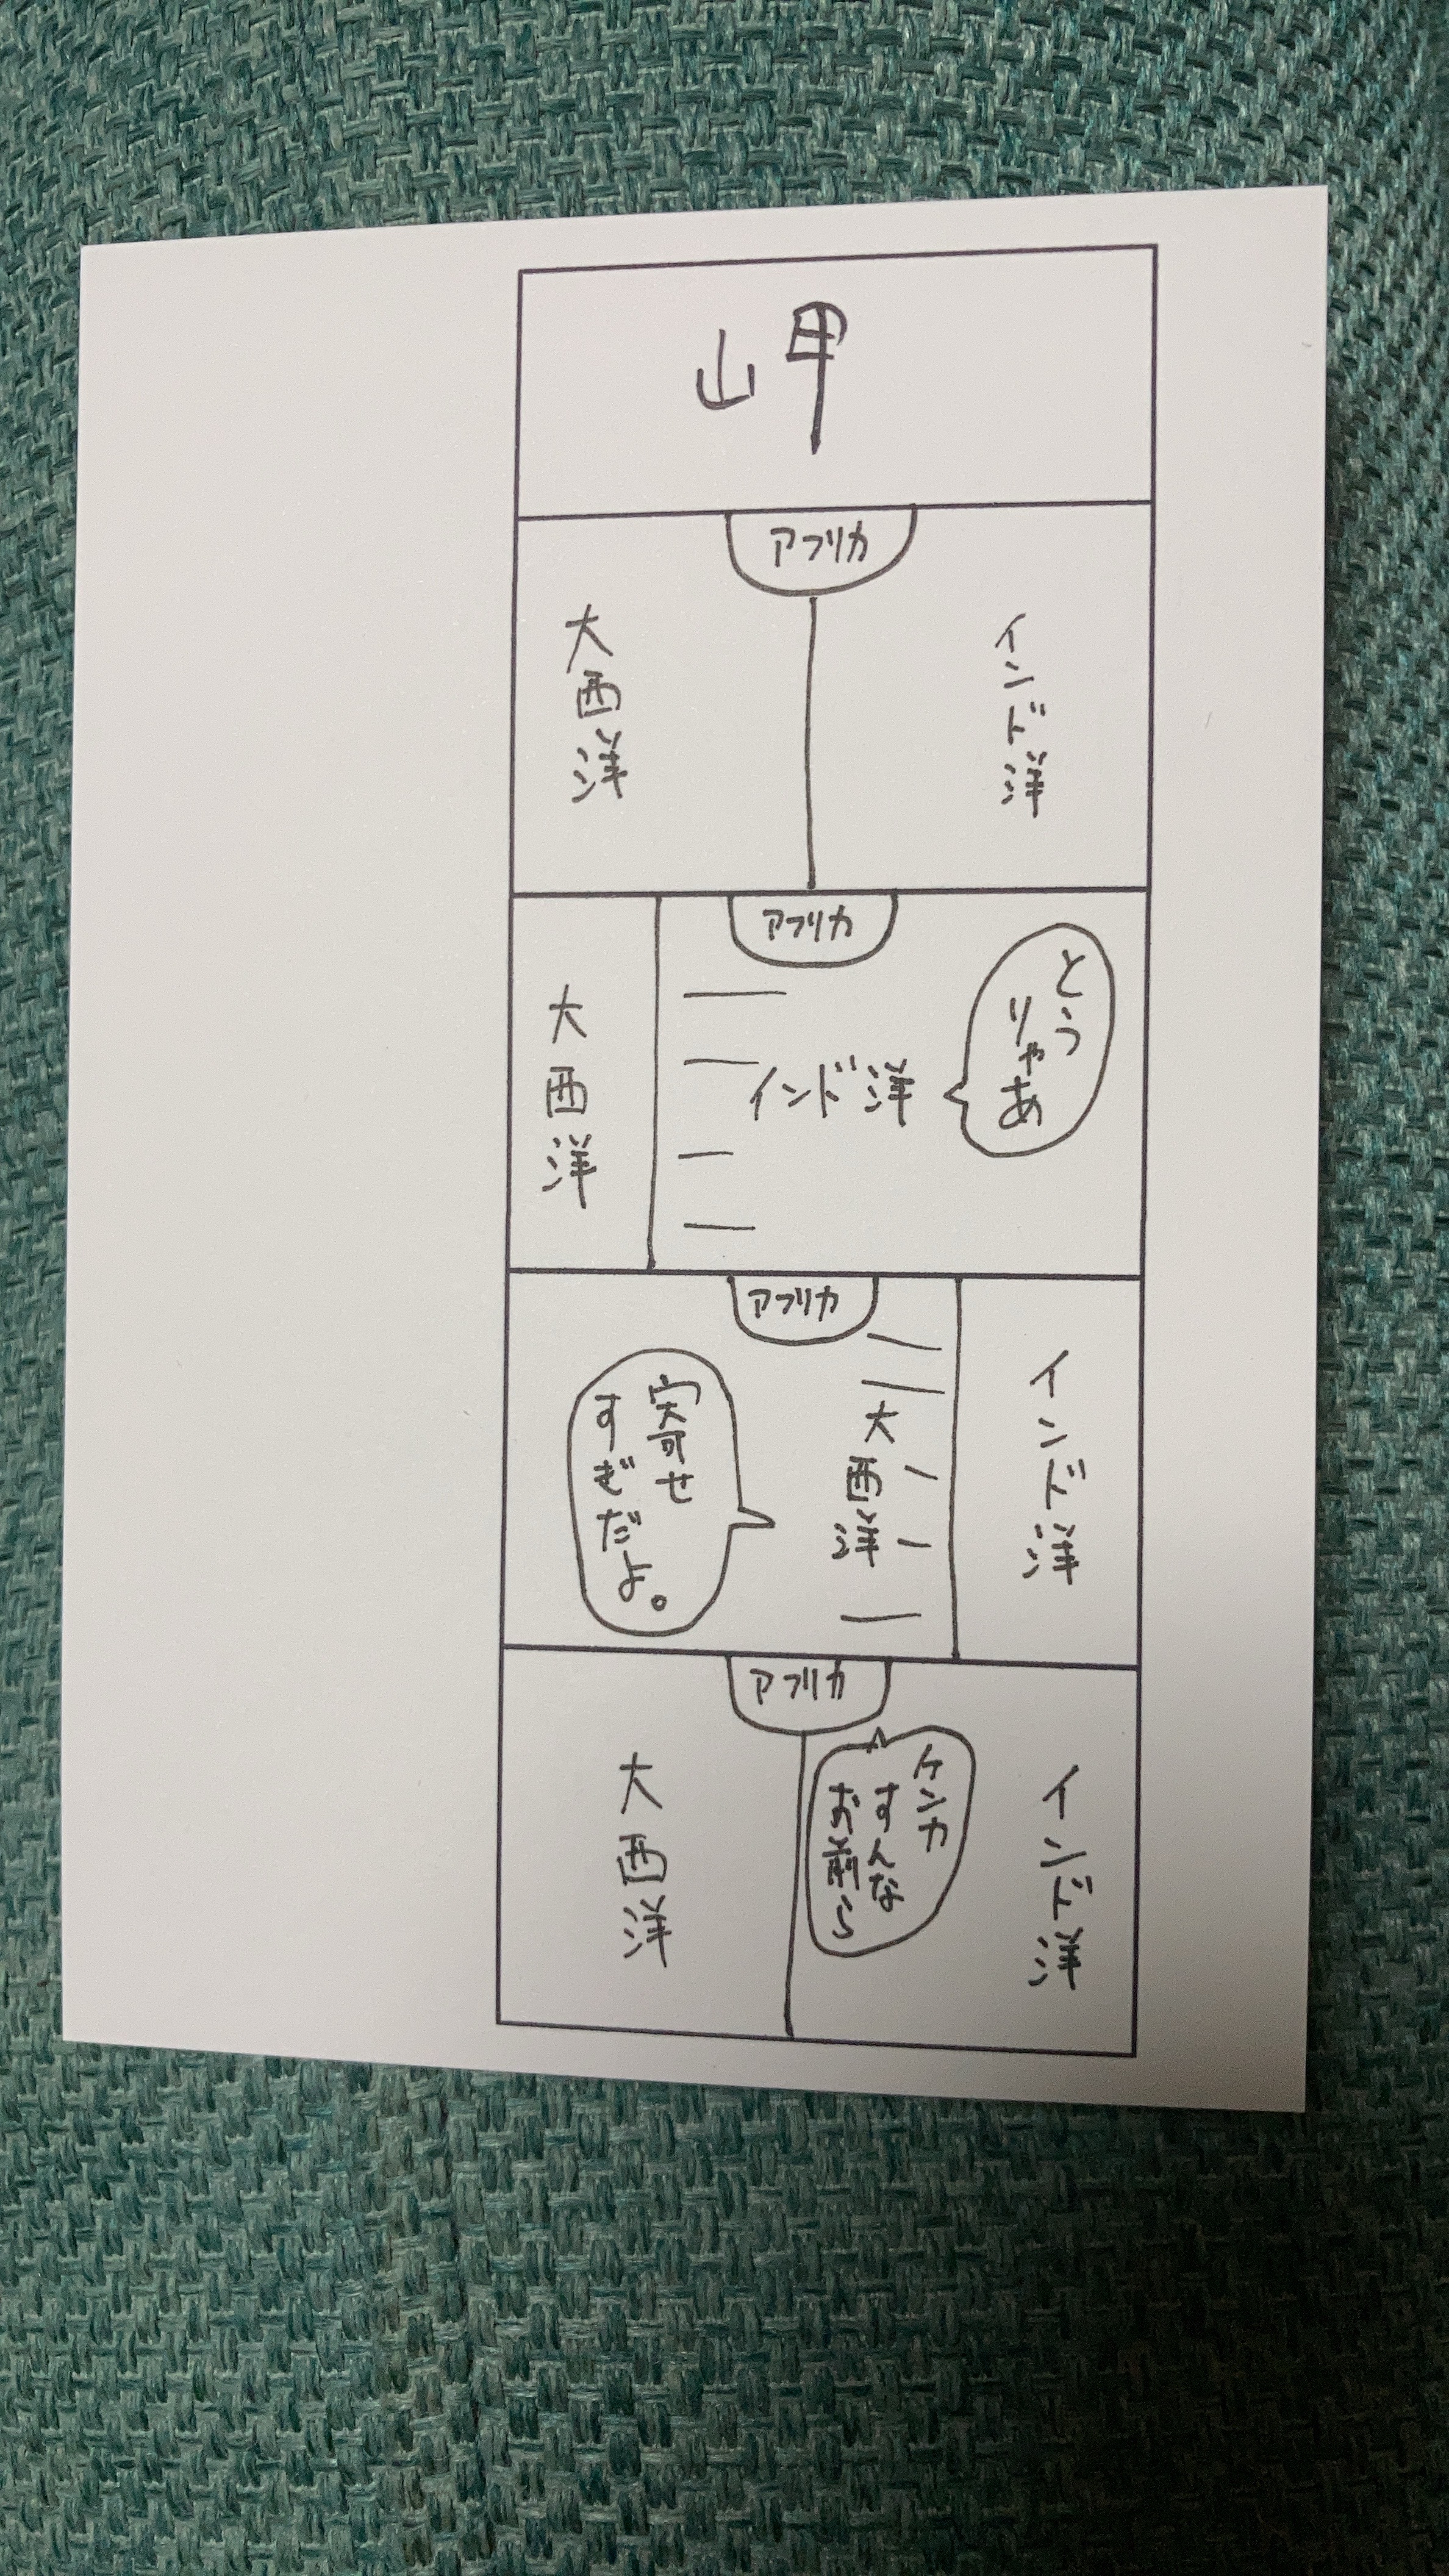 岬
アフリカ
インド洋
大西洋
アフリカ
とう
りゃあ
インド洋
大西洋
アフリカ
インド洋
大西洋
寄せ
すぎだよ。
アフリカ
インド洋
ケンカ
すんな
お前ら
大西洋